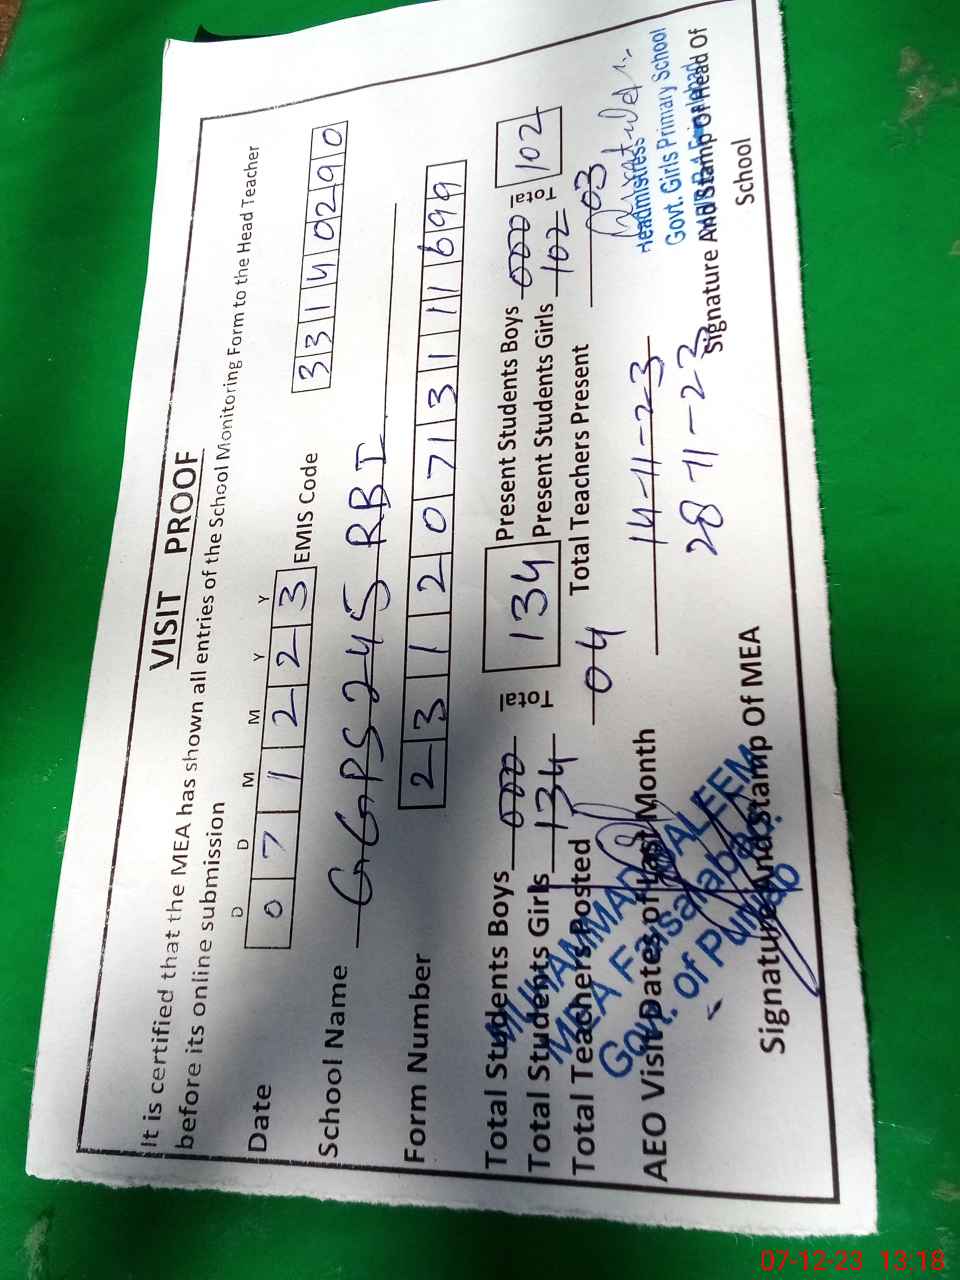 VISIT PROOF
It is certified that the MEA has shown all entries of the School Monitoring Form to the Head Teacher
before its online submission
D D M M Y Y
Date 0 7 1 2 2 3 EMIS Code 3 3 1 4 0 2 9 0
School Name GGPS 245 RB I
Form Number 2 3 1 2 0 7 1 3 1 1 1 6 9 9
Total Students Boys 000 Total 134 Present Students Boys 000 Total 102
Total Students Girls 134 Present Students Girls 102
Total Teachers Posted 04 Total Teachers Present 03
AEO Visit Dates of Last Month 14-11-23
28-11-23
MUHAMMAD SALEEM
MEA Faisalabad
Govt. of Punjab
Headmistress
Govt. Girls Primary School
Signature And Stamp Of MEA
Signature And Stamp Of Head Of
School
07-12-23 13:18